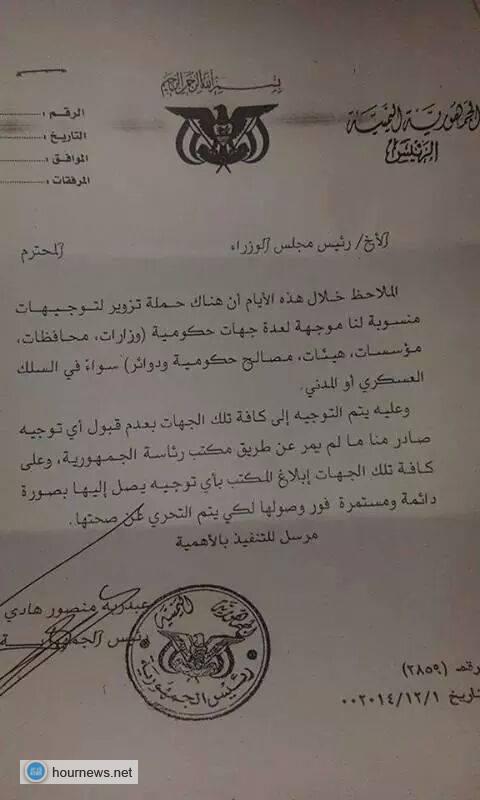 بسم الله الرحمن الرحيم
الجمهورية اليمنية
الرئيس
الرقم :
التاريخ :
الموافق :
المرفقات :
الأخ/ رئيس مجلس الوزراء المحترم
الملاحظ خلال هذه الأيام أن هناك حملة تزوير لتوجيهات
منسوبة لنا موجهة لعدة جهات حكومية (وزارات، محافظات،
مؤسسات، هيئات، مصالح حكومية ودوائر) سواءً في السلك
العسكري أو المدني.
وعليه يتم التوجيه إلى كافة تلك الجهات بعدم قبول أي توجيه
صادر منا ما لم يمر عن طريق مكتب رئاسة الجمهورية، وعلى
كافة تلك الجهات إبلاغ المكتب بأي توجيه يصل إليها بصورة
دائمة ومستمرة فور وصولها لكي يتم التحري عن صحتها.
مرسل للتنفيذ بالأهمية
عبدربه منصور هادي
رئيس الجمهورية
الجمهورية اليمنية
رئيس الجمهورية
رقم (٢٨٥٩)
تاريخ ٠٠٢٠١٤/١٢/١
hournews.net